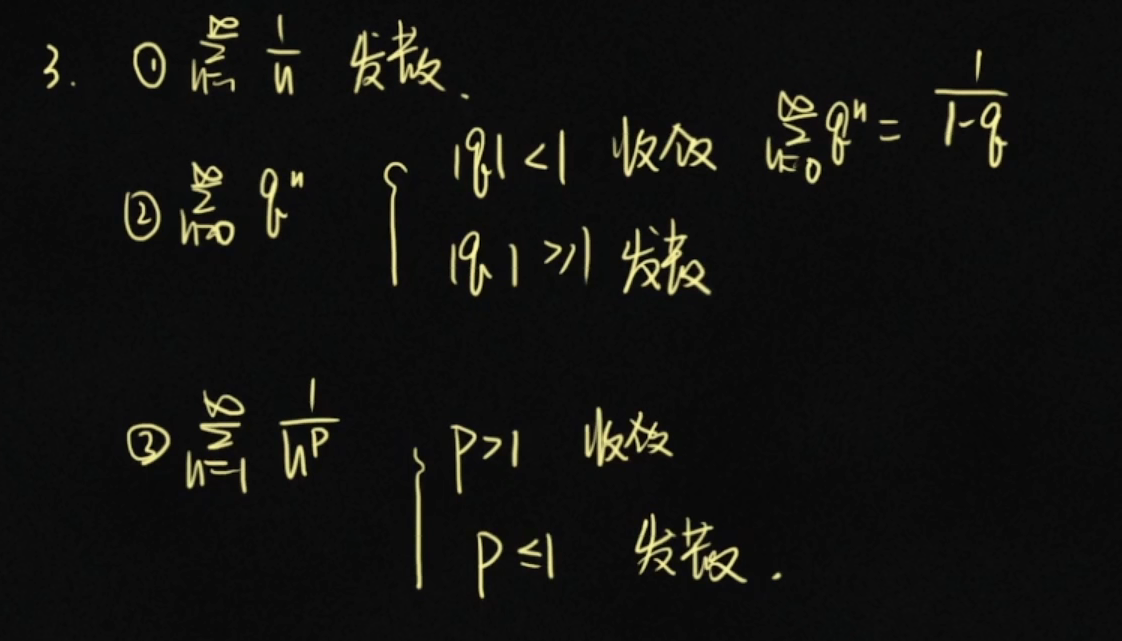 3. ① $\sum_{n=1}^{\infty} \frac{1}{n}$ 发散.
② $\sum_{n=0}^{\infty} q^n$ { |q| < 1 收敛 $\sum_{n=0}^{\infty} q^n = \frac{1}{1-q}$
|q| ≥ 1 发散
③ $\sum_{n=1}^{\infty} \frac{1}{n^p}$ { p > 1 收敛
p ≤ 1 发散.